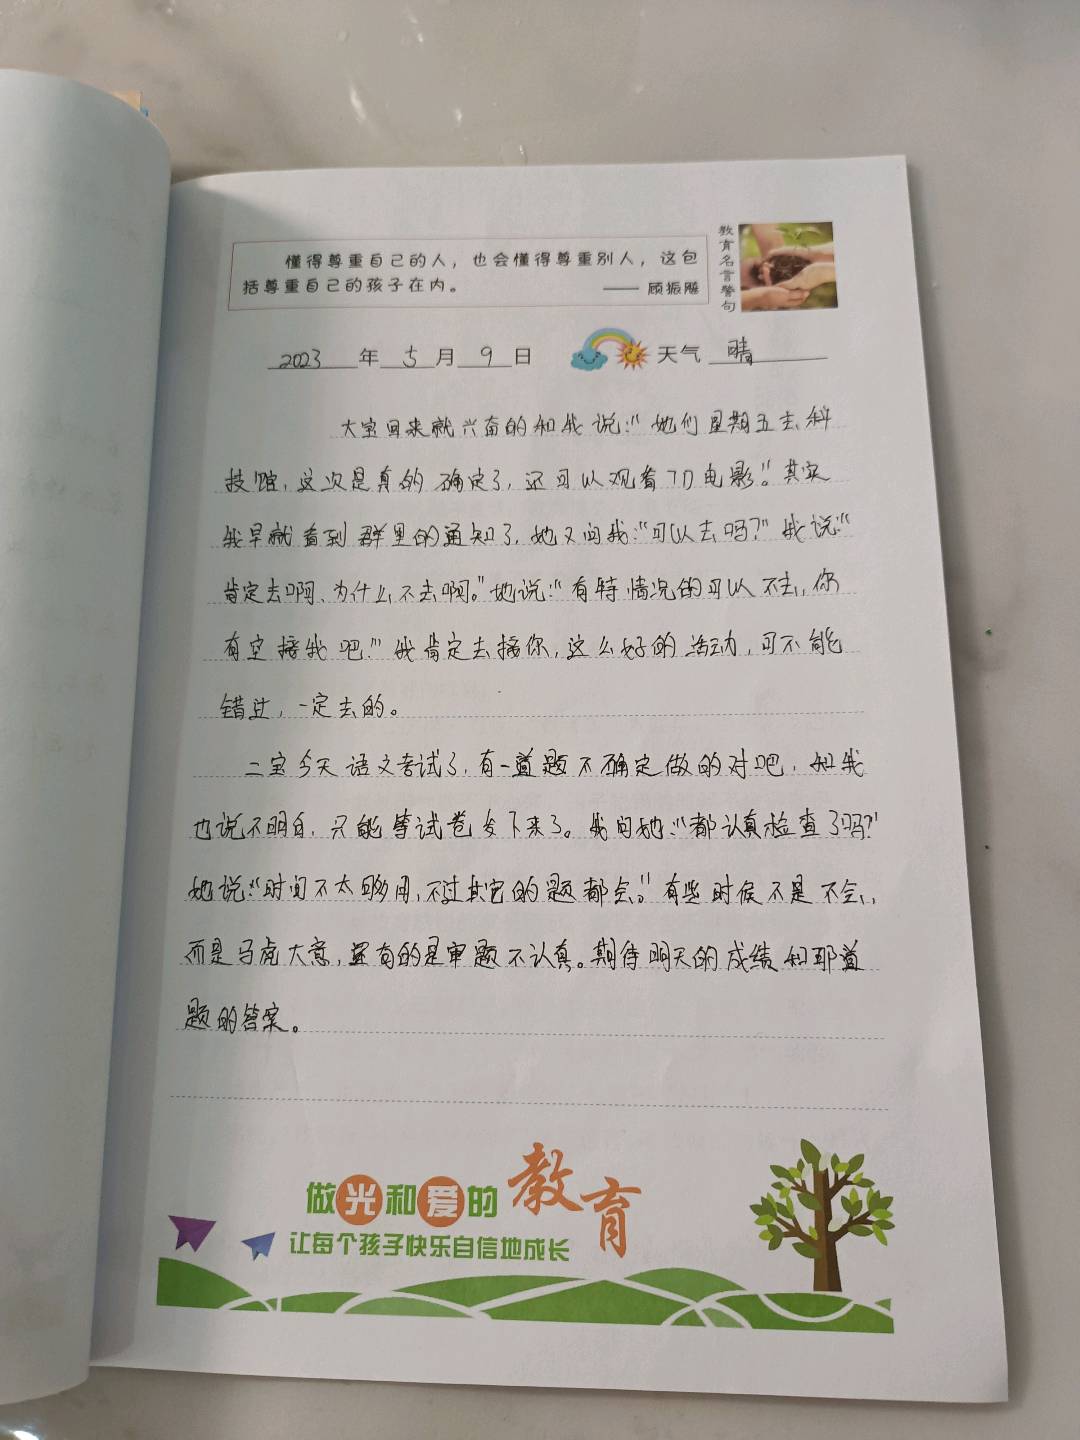 懂得尊重自己的人，也会懂得尊重别人，这包
括尊重自己的孩子在内。 —— 顾振飚
教育名言警句
2023年5月9日 天气 晴
大宝回来就兴奋的和我说：“她们星期五去科
技馆，这次是真的确定了，还可以观看7D电影。”其实
我早就看到群里的通知了，她又问我：“可以去吗？”我说：“
肯定去啊、为什么不去啊。”她说：“有特情况的可以不去，你
有空接我吧。”我肯定去接你，这么好的活动，可不能
错过，一定去的。
二宝今天语文考试了，有一道题不确定做的对吧，和我
也说不明白，只能等试卷发下来了。我问她：“都认真检查了吗？”
她说：“时间不太够用，不过其它的题都会。”有些时候不是不会，
而是马虎大意，还有的是审题不认真。期待明天的成绩和那道
题的答案。
做光和爱的教育
让每个孩子快乐自信地成长